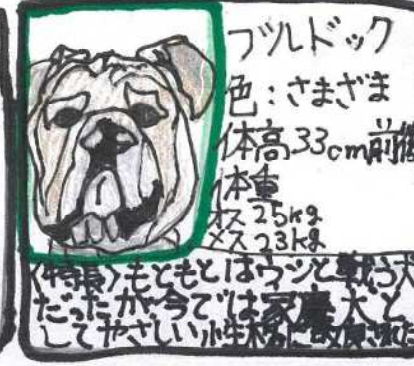 ブルドック
色：さまざま
体高33cm前後
体重
オス 25kg
メス 23kg
〈特長〉もともとはウシと戦う犬
だったが今では家庭犬と
してやさしい性格に改良された